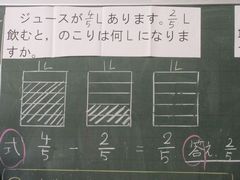 ジュースが4/5Lあります。2/5L
飲むと、のこりは何Lになりま
すか。
1L 1L 1L
式 4/5 - 2/5 = 2/5 答え. 2/5